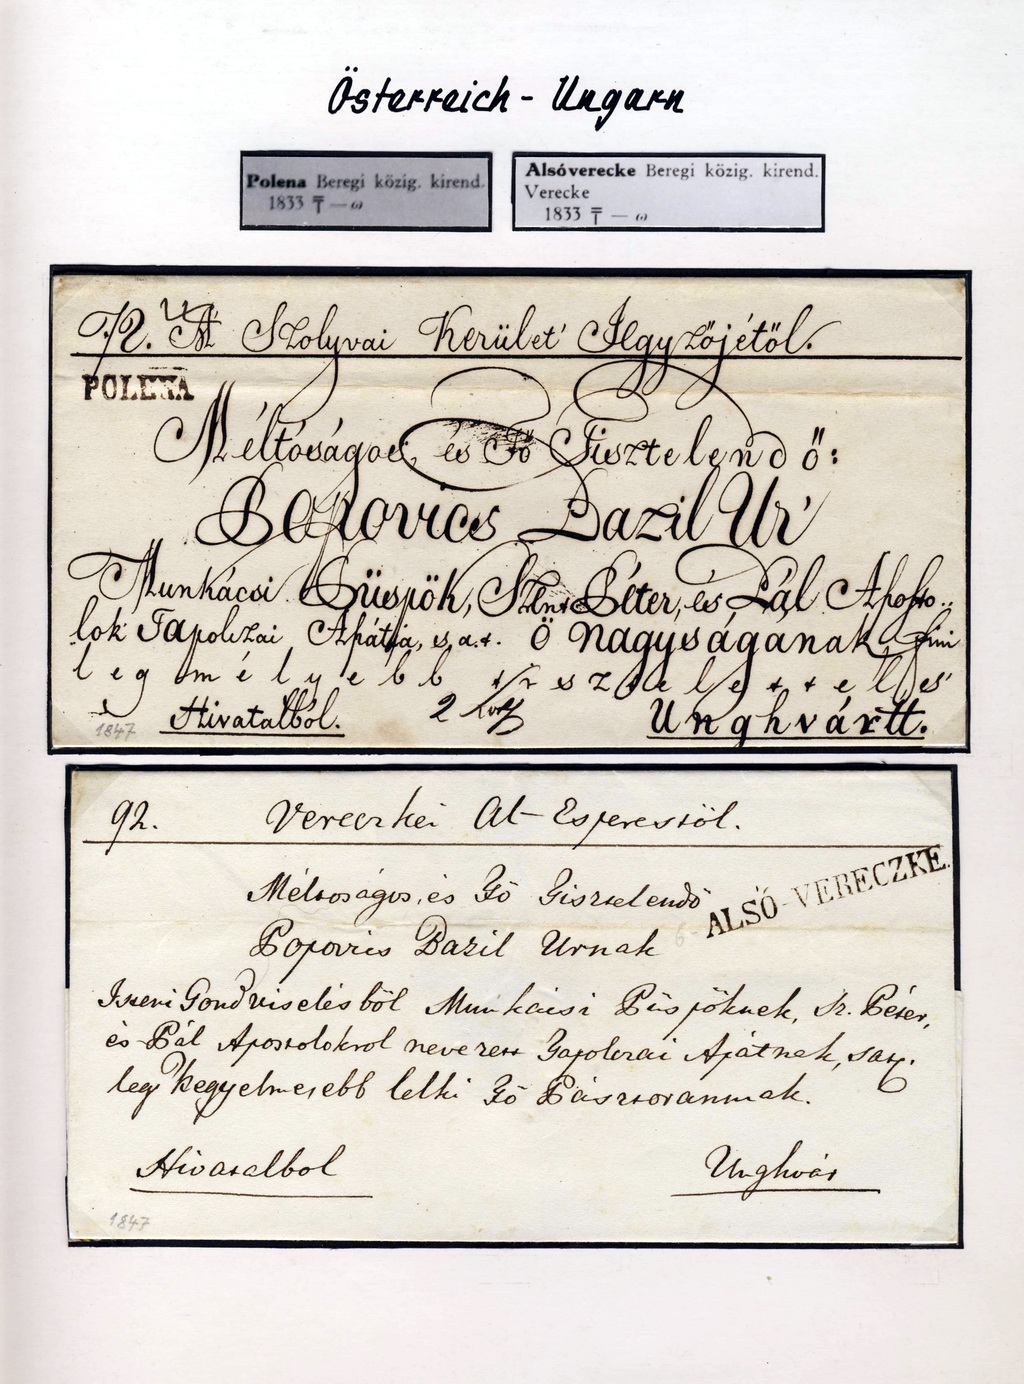 Österreich - Ungarn
Polena Beregi közig. kirend.
1833
Alsóverecke Beregi közig. kirend.
Verecke
1833
72. A Szolyvai Kerület' Jegyzőjétöl.
POLENA
Méltóságos, és Fő Tisztelendő:
Popovics Bazil Ur'
Munkácsi Püspök, Szent Péter, és Pál Aposto..
lok Tapolczai Apátja, s.a.t. Ő Nagyságának,
legmélyebb tisztelettel
Hivatalból. 2 Unghvártt.
1847
92. Vereczkei Al-Esperestöl.
Méltoságos, és Fö Tisztelendö
ALSÓ-VERECZKE.
Popovics Bazil Urnak
Isteni Gondviselés böl Munkácsi Püspöknek, Sz. Péter,
és Pál Apostolokrol nevezett Tapolczai Apátnak,
leg kegyelmesebb lelki Fö Pásztorannak.
Hivatalbol Unghvár
1847